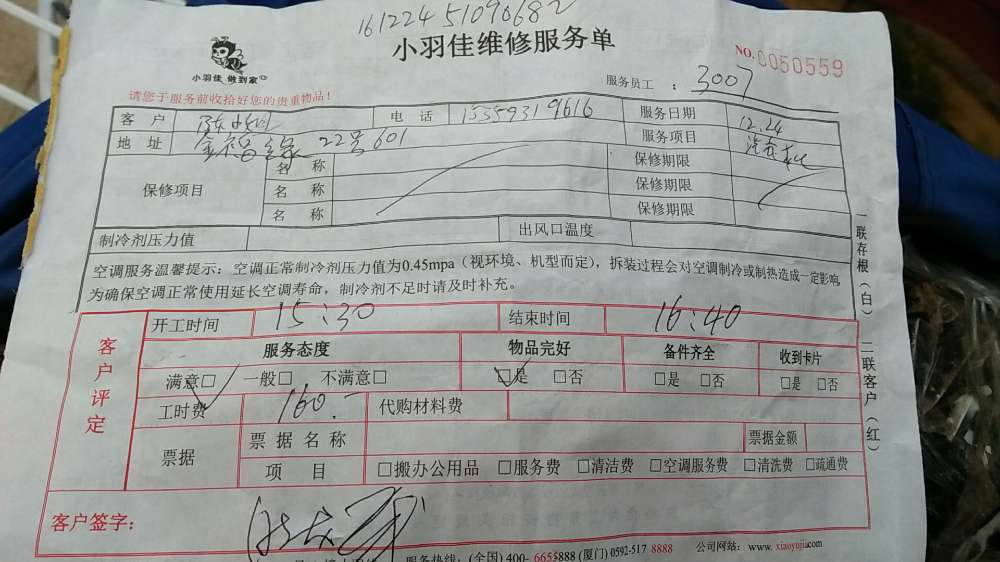 161224 51090682
小羽佳维修服务单
小羽佳 做到家
NO. 0050559
服务员工 : 3007
请您于服务前收拾好您的贵重物品！
客 户 电 话 15359319616 服务日期 12.24
地 址 22号601 服务项目
保修项目 名 称 保修期限
名 称 保修期限
名 称 保修期限
制冷剂压力值 出风口温度
空调服务温馨提示：空调正常制冷剂压力值为0.45mpa（视环境、机型而定），拆装过程会对空调制冷或制热造成一定影响
为确保空调正常使用延长空调寿命，制冷剂不足时请及时补充。
一联存根（白） 二联客户（红）
客户评定
开工时间 15:30 结束时间 16:40
服务态度 物品完好 备件齐全 收到卡片
满意□ 一般□ 不满意□ □是 □否 □是 □否 □是 □否
工时费 160.- 代购材料费
票据 票 据 名 称 票据金额
项 目 □搬办公用品 □服务费 □清洁费 □空调服务费 □清洗费 □疏通费
客户签字：
服务热线：(全国) 400- 6655888 (厦门) 0592-517 8888 公司网站：www. xiaoyujia.com